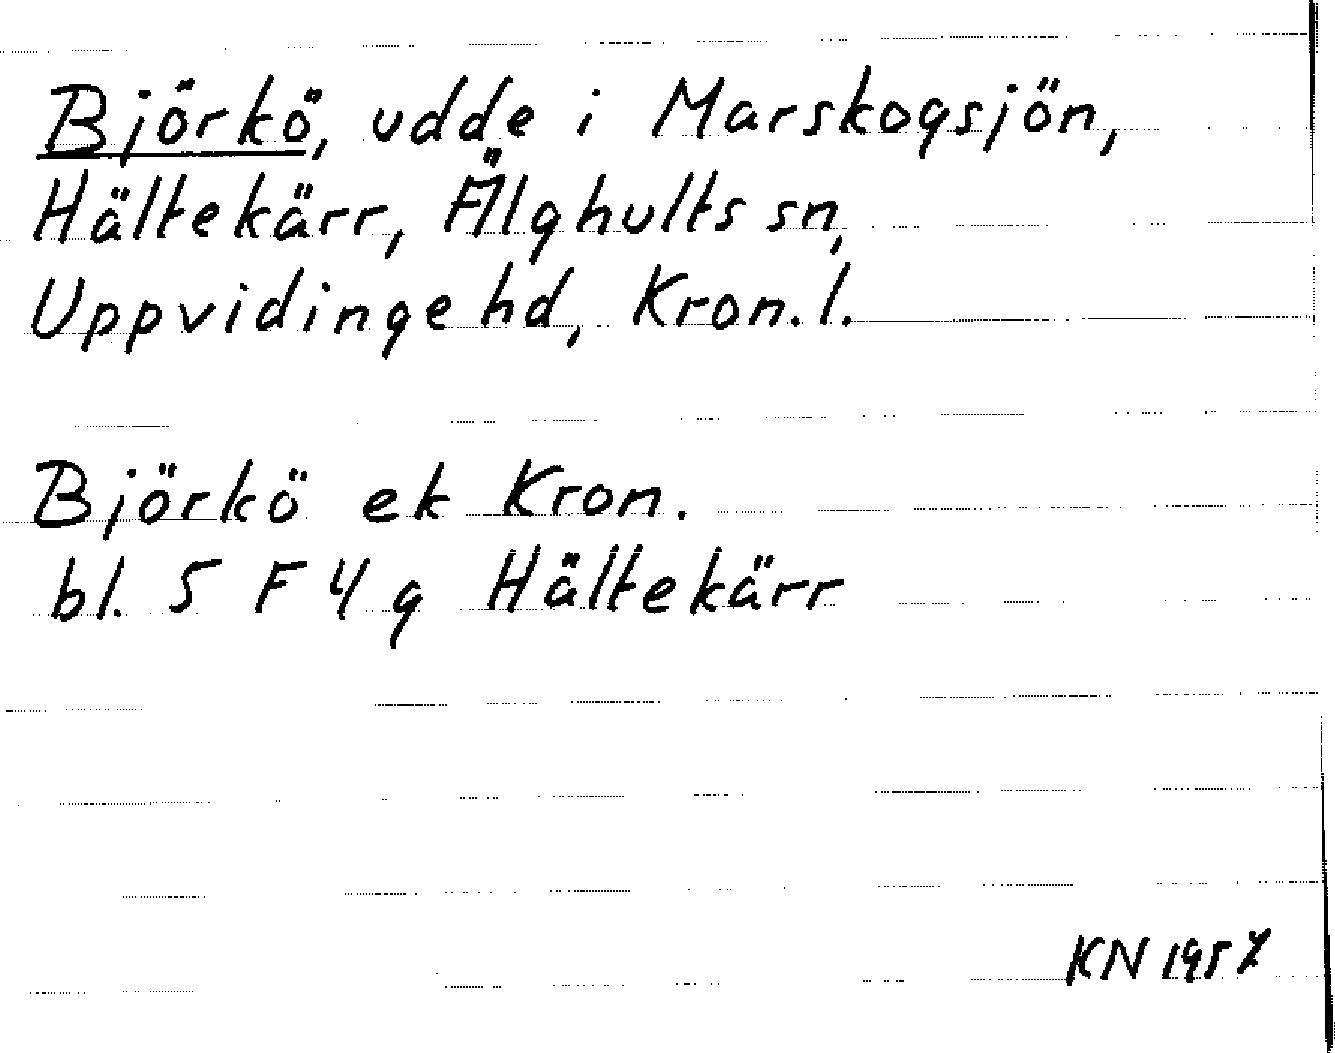 Björkö, udde i Marskogsjön,
Hältekärr, Älghults sn,
Uppvidinge hd, Kron. l.
Björkö ek Kron.
bl. 5 F 4 g Hältekärr
KN 1957